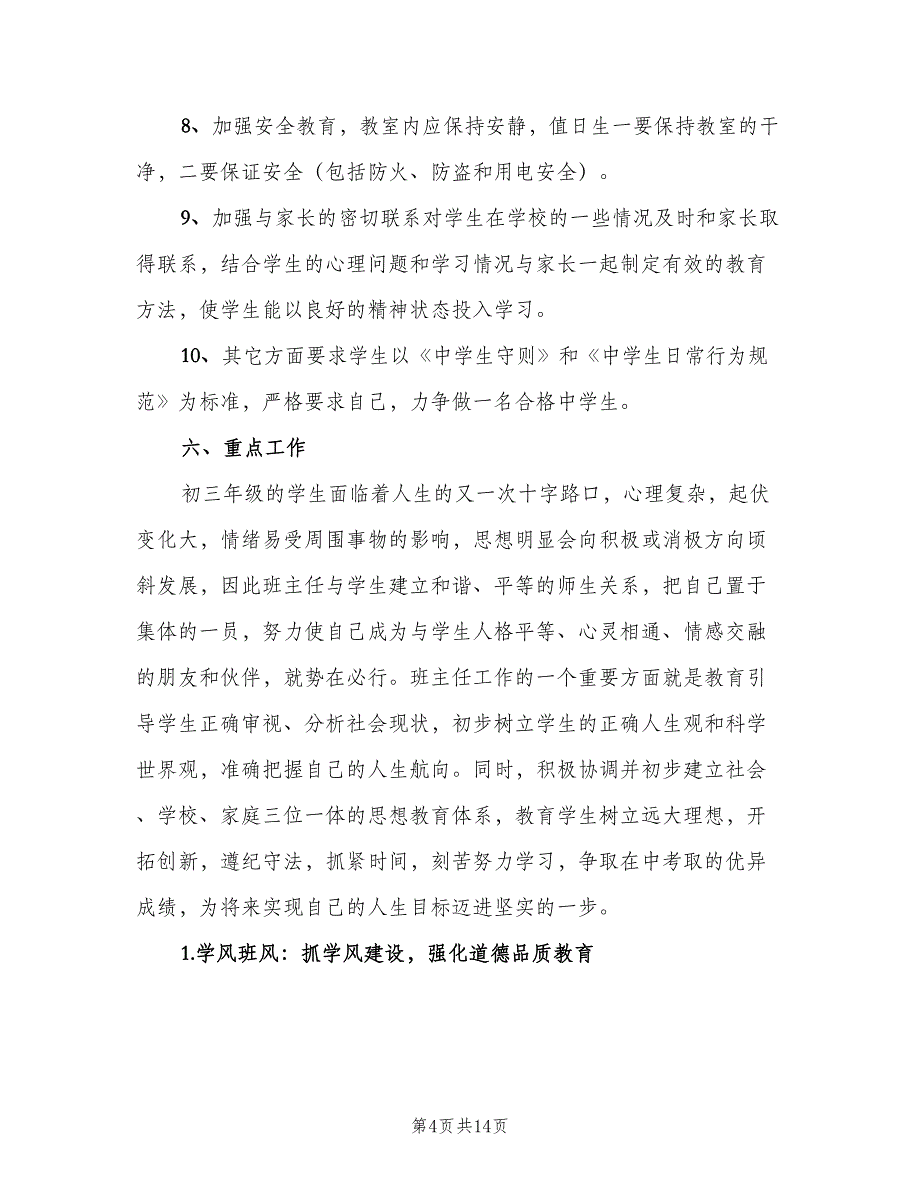 8、加强安全教育，教室内应保持安静，值日生一要保持教室的干
净，二要保证安全（包括防火、防盗和用电安全）。
9、加强与家长的密切联系对学生在学校的一些情况及时和家长取
得联系，结合学生的心理问题和学习情况与家长一起制定有效的教育
方法，使学生能以良好的精神状态投入学习。
10、其它方面要求学生以《中学生守则》和《中学生日常行为规
范》为标准，严格要求自己，力争做一名合格中学生。
六、重点工作
初三年级的学生面临着人生的又一次十字路口，心理复杂，起伏
变化大，情绪易受周围事物的影响，思想明显会向积极或消极方向顷
斜发展，因此班主任与学生建立和谐、平等的师生关系，把自己置于
集体的一员，努力使自己成为与学生人格平等、心灵相通、情感交融
的朋友和伙伴，就势在必行。班主任工作的一个重要方面就是教育引
导学生正确审视、分析社会现状，初步树立学生的正确人生观和科学
世界观，准确把握自己的人生航向。同时，积极协调并初步建立社会
、学校、家庭三位一体的思想教育体系，教育学生树立远大理想，开
拓创新，遵纪守法，抓紧时间，刻苦努力学习，争取在中考取的优异
成绩，为将来实现自己的人生目标迈进坚实的一步。
1.学风班风：抓学风建设，强化道德品质教育
第4页共14页